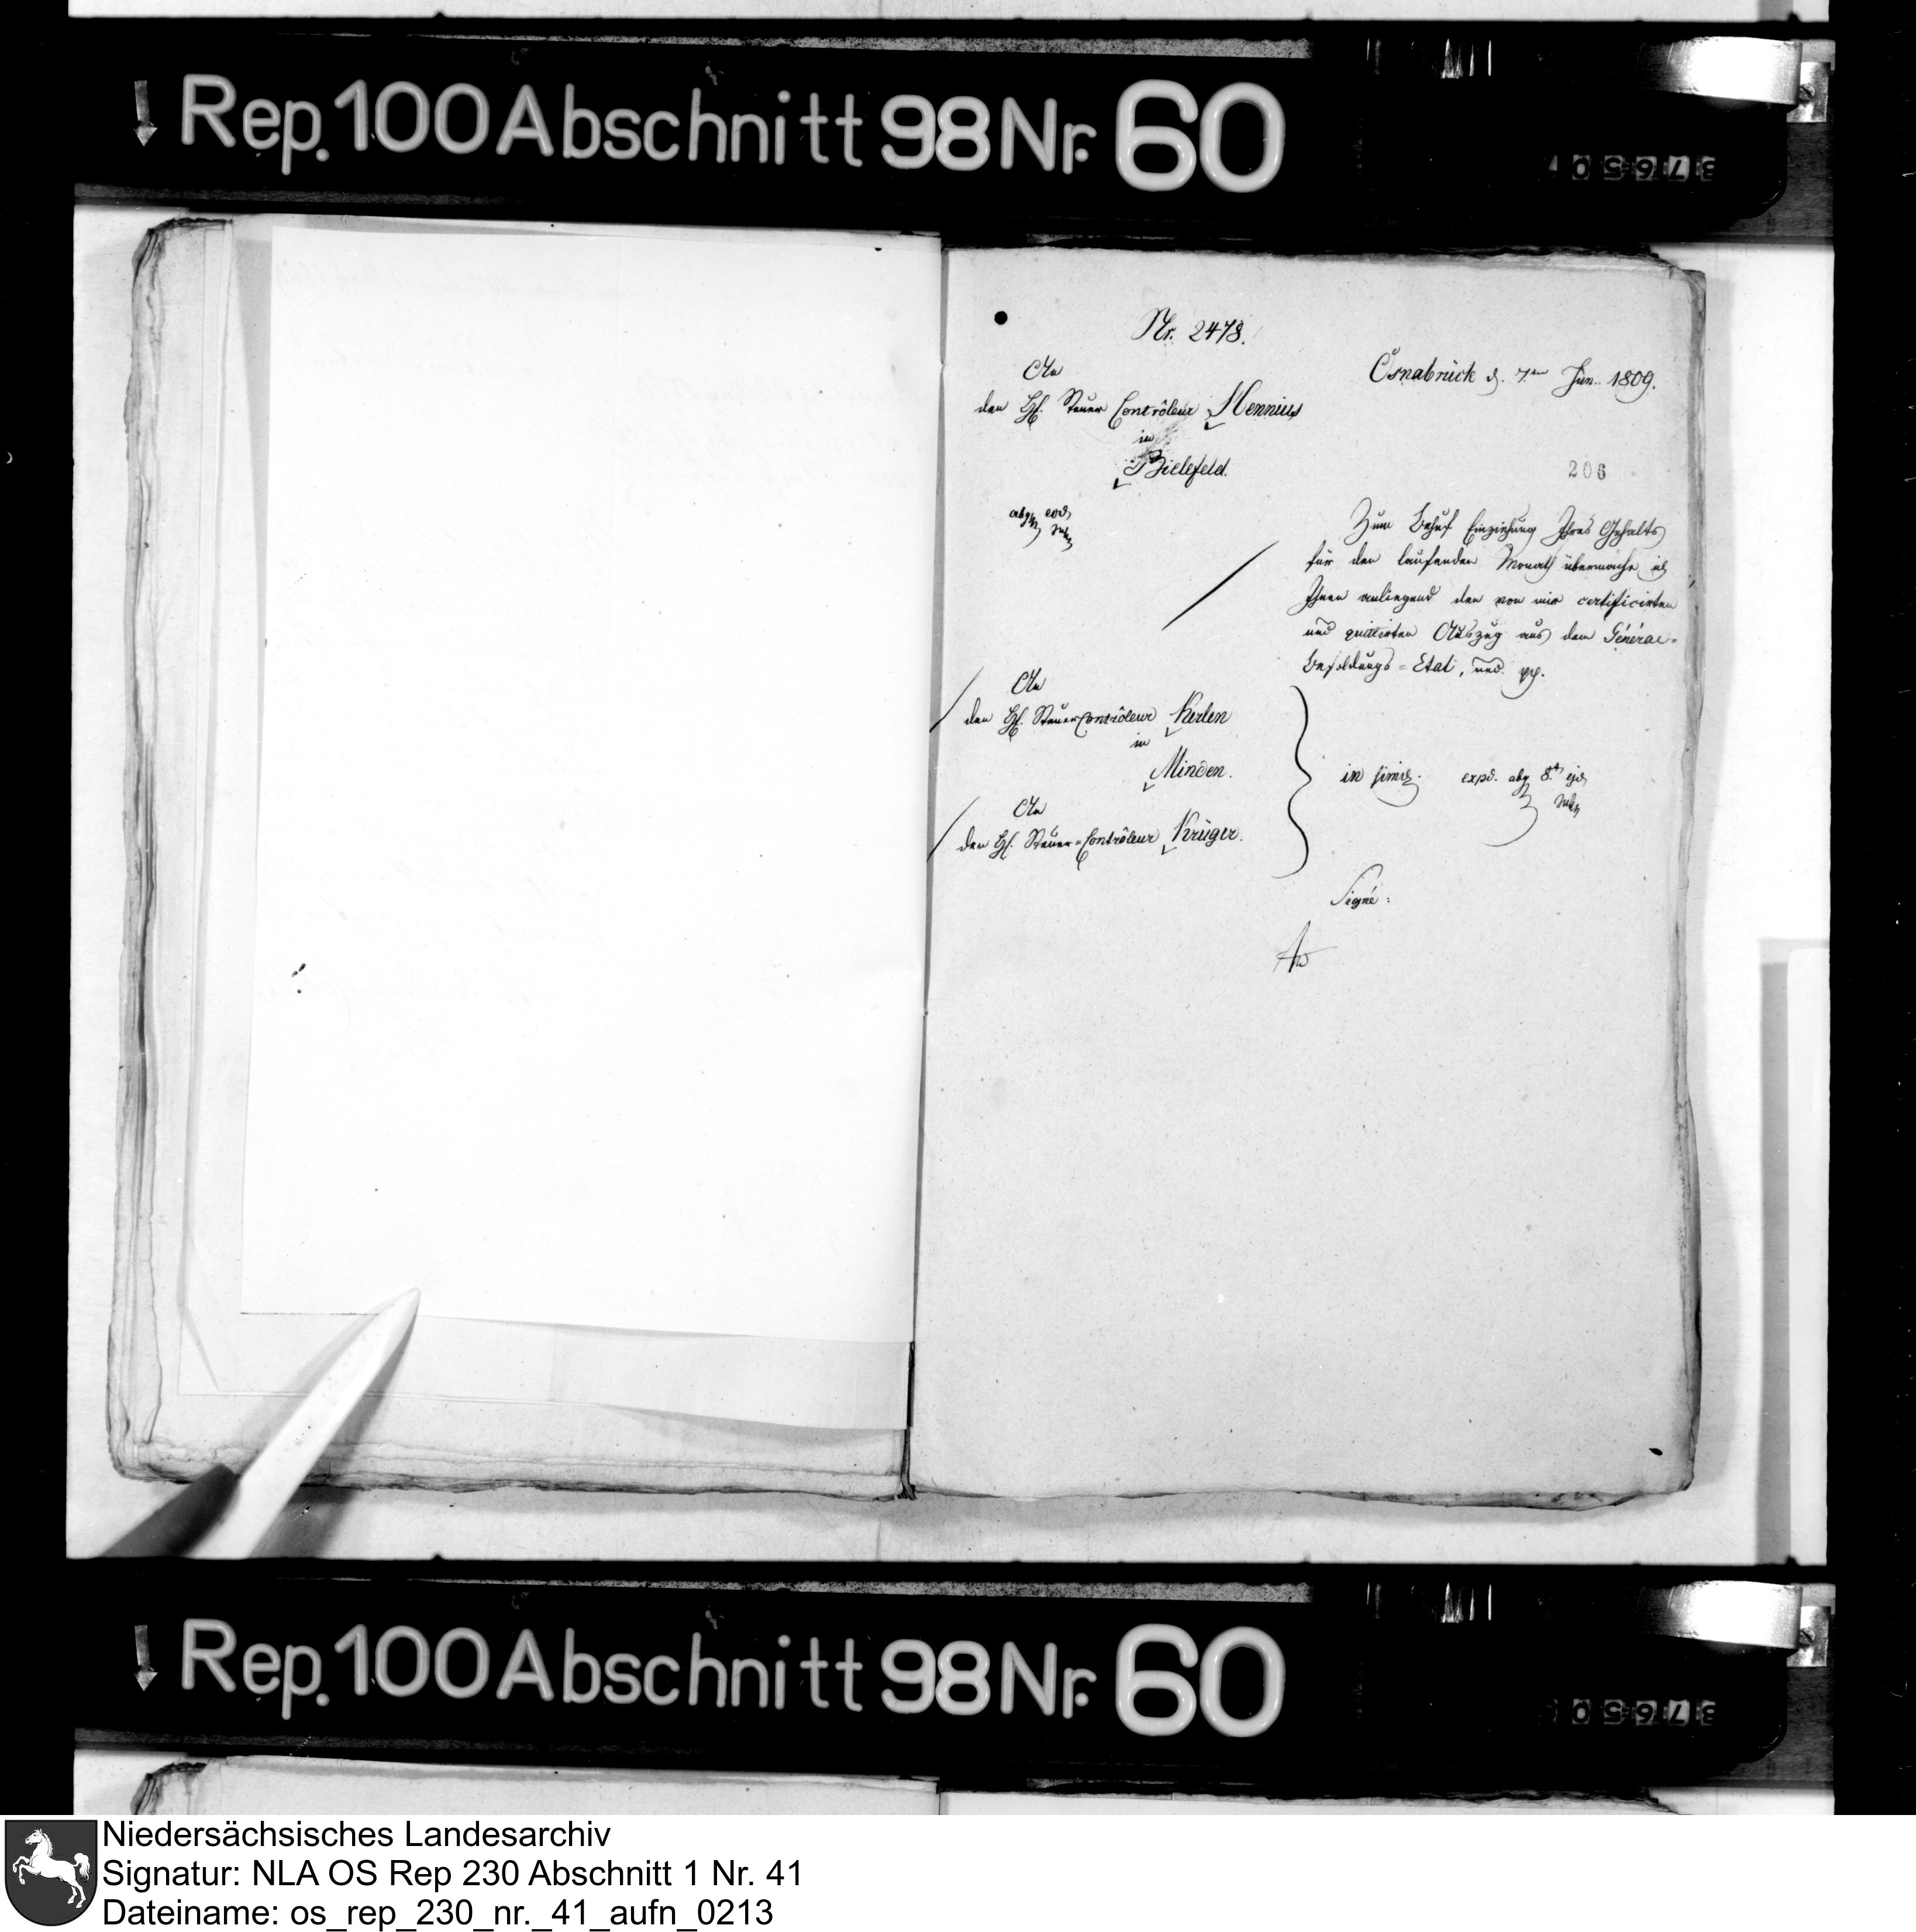 Rep. 100 Abschnitt 98 Nr. 60
37650
Nr. 2478.
Osnabrück d. 7ten Jun. 1809.
An
den H. Steuer Contrôleur Mennius
in
Bielefeld.
206
abg. eod.
Zum Behuf Einziehung Ihres Gehalts
für den laufenden Monath übermache ich
Ihnen anliegend den von mir certificirten
und quittirten Auszug aus dem Général-
Besoldungs-Etat, und pp.
An
den H. Steuer Contrôleur Kerlen
in
Minden.
in simili. expd. abg. 8t ejd.
An
den H. Steuer-Contrôleur Krüger.
Signé:
Rep. 100 Abschnitt 98 Nr. 60
37650
Niedersächsisches Landesarchiv
Signatur: NLA OS Rep 230 Abschnitt 1 Nr. 41
Dateiname: os_rep_230_nr._41_aufn_0213